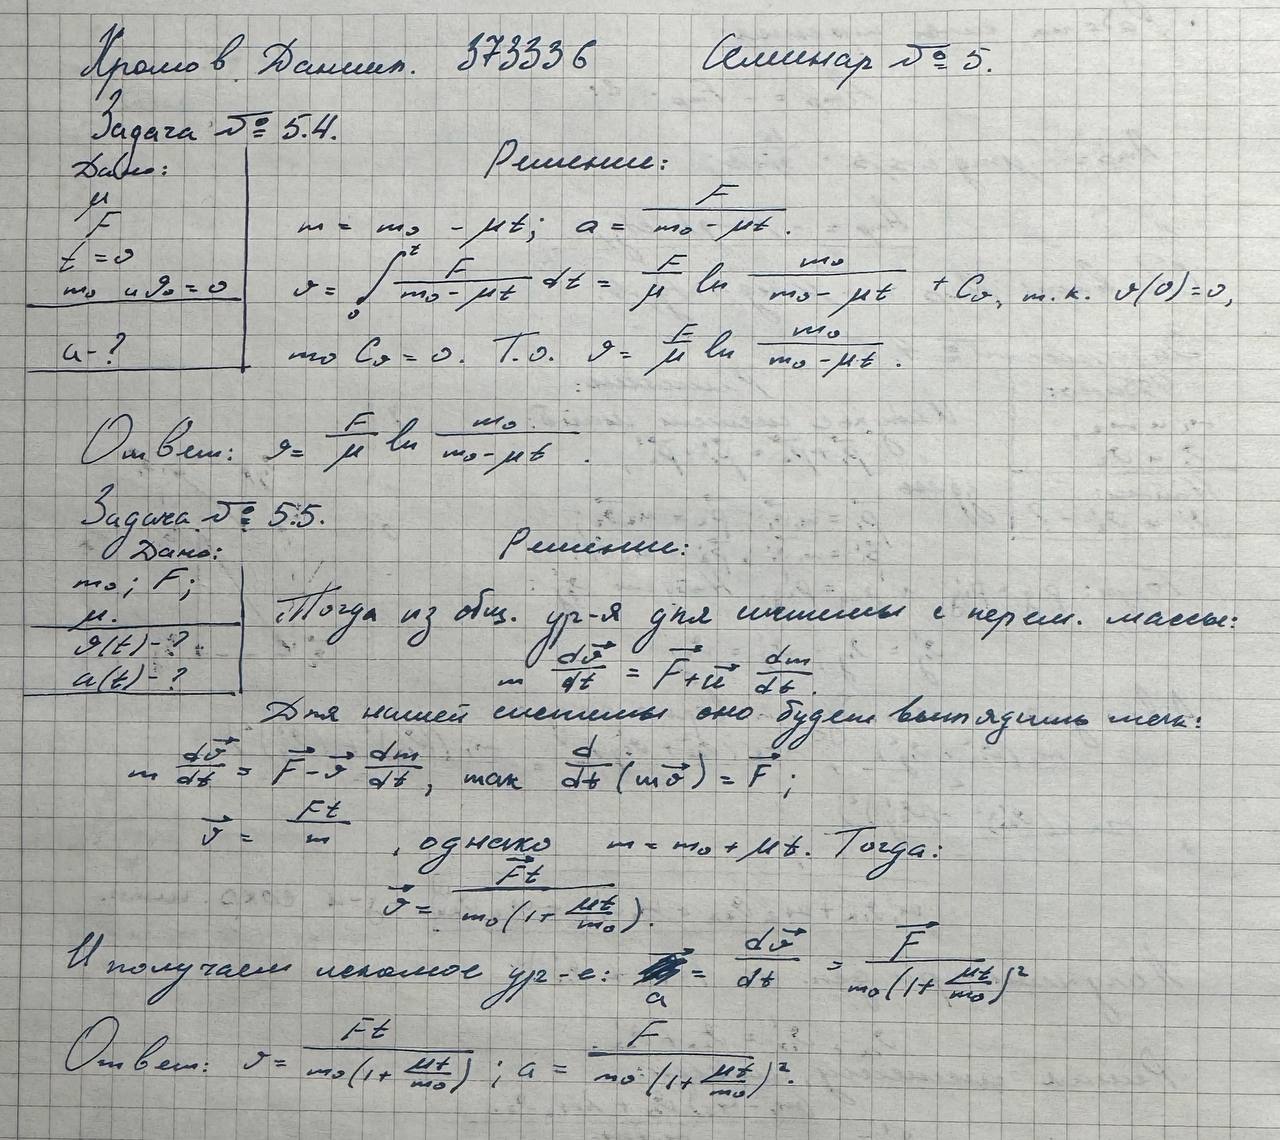 Хромов Даниил. 373336 Семинар № 5.
Задача № 5.4.
Дано:
μ
F
t = 0
m₀ и ϑ₀ = 0
a - ?
Решение:
m = m₀ - μt; a = F/(m₀ - μt).
ϑ = ∫₀ᵗ F/(m₀ - μt) dt = F/μ ln m₀/(m₀ - μt) + C₀, т.к. ϑ(0) = 0,
то C₀ = 0. Т.о. ϑ = F/μ ln m₀/(m₀ - μt).
Ответ: ϑ = F/μ ln m₀/(m₀ - μt).
Задача № 5.5.
Дано:
m₀; F;
μ.
ϑ(t) - ?
a(t) - ?
Решение:
Тогда из общ. ур-я для системы с перем. массы:
m dϑ⃗/dt = F⃗ + u⃗ dm/dt.
Для нашей системы оно будет выглядить так:
m dϑ⃗/dt = F⃗ - ϑ⃗ dm/dt, так d/dt (mϑ⃗) = F⃗;
ϑ⃗ = Ft/m, однако m = m₀ + μt. Тогда:
ϑ⃗ = F⃗t/(m₀(1 + μt/m₀)).
И получаем искомое ур-е: a = dϑ⃗/dt = F⃗/(m₀(1 + μt/m₀)²)
Ответ: ϑ = Ft/(m₀(1 + μt/m₀)); a = F/(m₀(1 + μt/m₀)²).